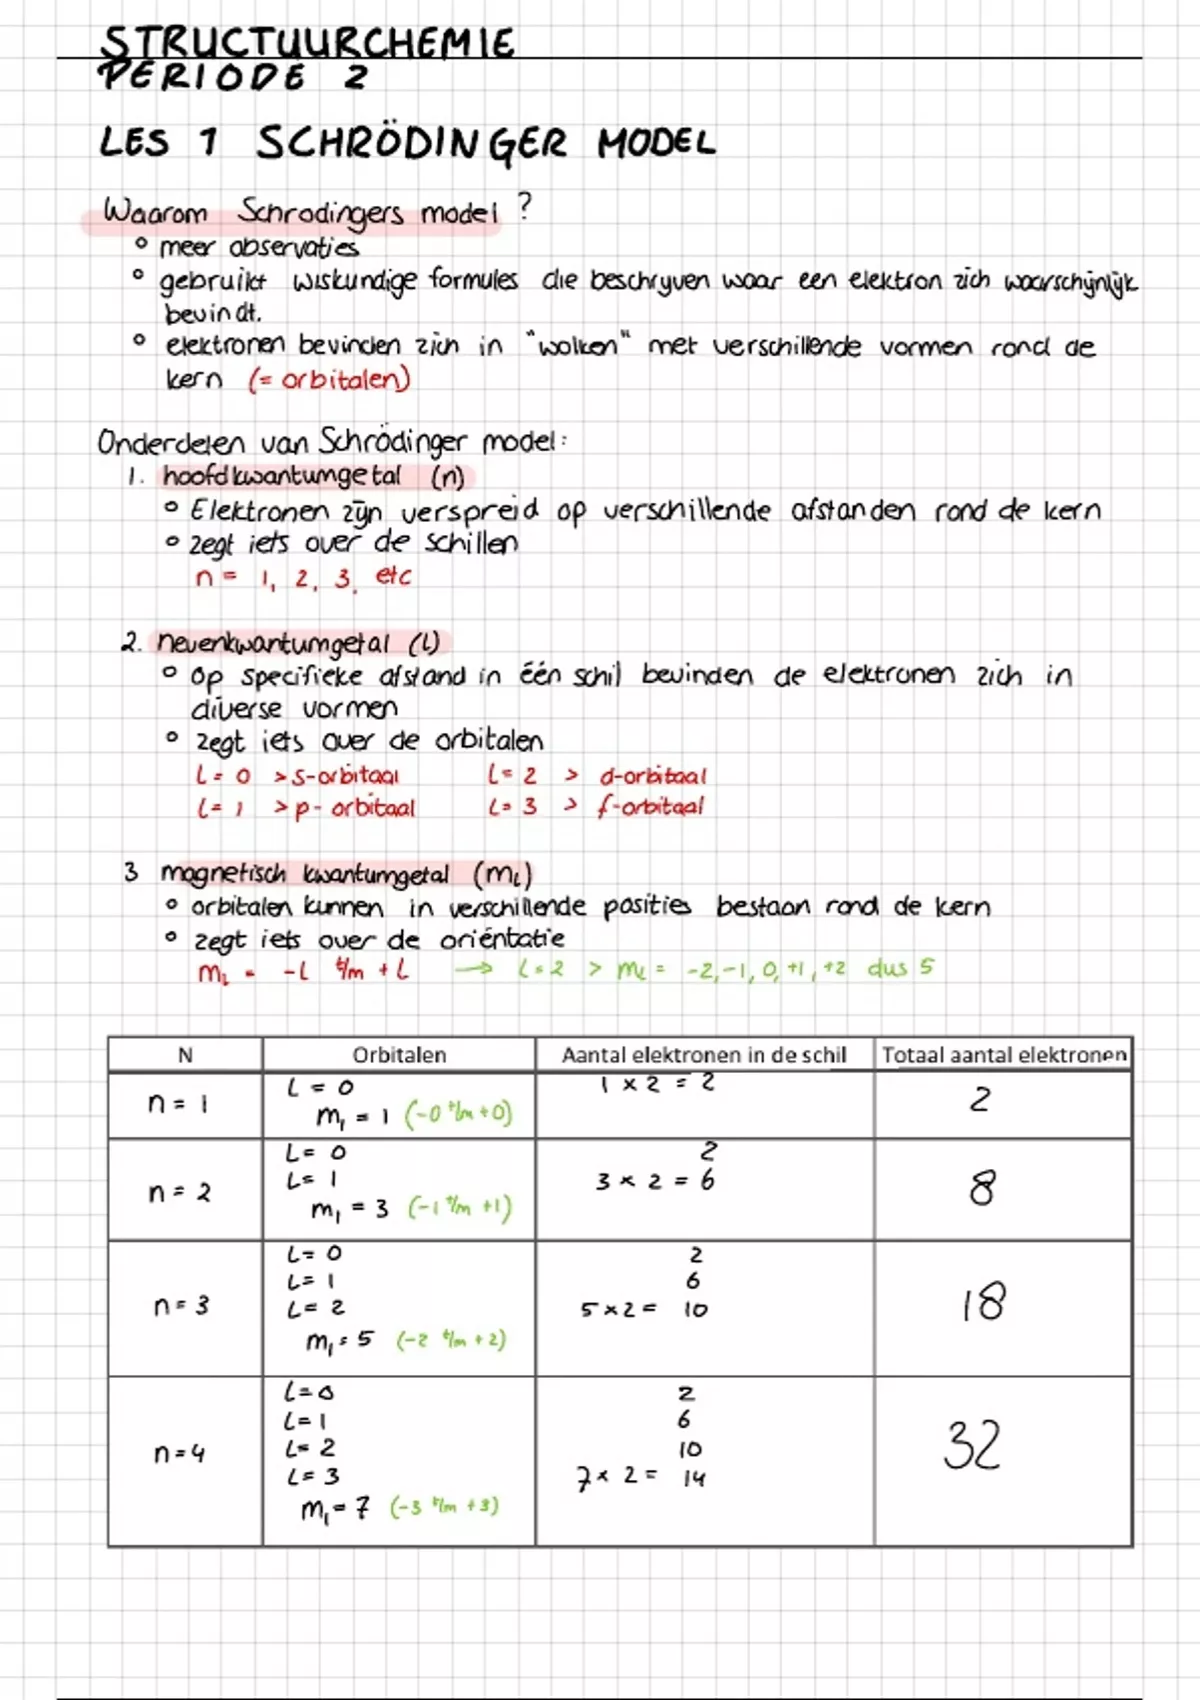 STRUCTUURCHEMIE
PERIODE 2
LES 1 SCHRÖDINGER MODEL
Waarom Schrodingers model ?
° meer observaties
° gebruikt wiskundige formules die beschrijven waar een elektron zich waarschijnlijk
bevindt.
° elektronen bevinden zich in "wolken" met verschillende vormen rond de
kern (= orbitalen)
Onderdelen van Schrödinger model:
1. hoofdkwantumgetal (n)
° Elektronen zijn verspreid op verschillende afstanden rond de kern
° zegt iets over de schillen
n = 1, 2, 3, etc
2. nevenkwantumgetal (l)
° Op specifieke afstand in één schil bevinden de elektronen zich in
diverse vormen
° zegt iets over de orbitalen
L = 0 > s-orbitaal L = 2 > d-orbitaal
L = 1 > p-orbitaal L = 3 > f-orbitaal
3 magnetisch kwantumgetal (mL)
° orbitalen kunnen in verschillende posities bestaan rond de kern
° zegt iets over de oriëntatie
mL = -L t/m +L → L = 2 > mL = -2, -1, 0, +1, +2 dus 5
N Orbitalen Aantal elektronen in de schil Totaal aantal elektronen
n = 1 L = 0 1 x 2 = 2 2
m1 = 1 (-0 t/m +0)
n = 2 L = 0 2 8
L = 1 3 x 2 = 6
m1 = 3 (-1 t/m +1)
n = 3 L = 0 2 18
L = 1 6
L = 2 5 x 2 = 10
m1 = 5 (-2 t/m +2)
n = 4 L = 0 2 32
L = 1 6
L = 2 10
L = 3 7 x 2 = 14
m1 = 7 (-3 t/m +3)